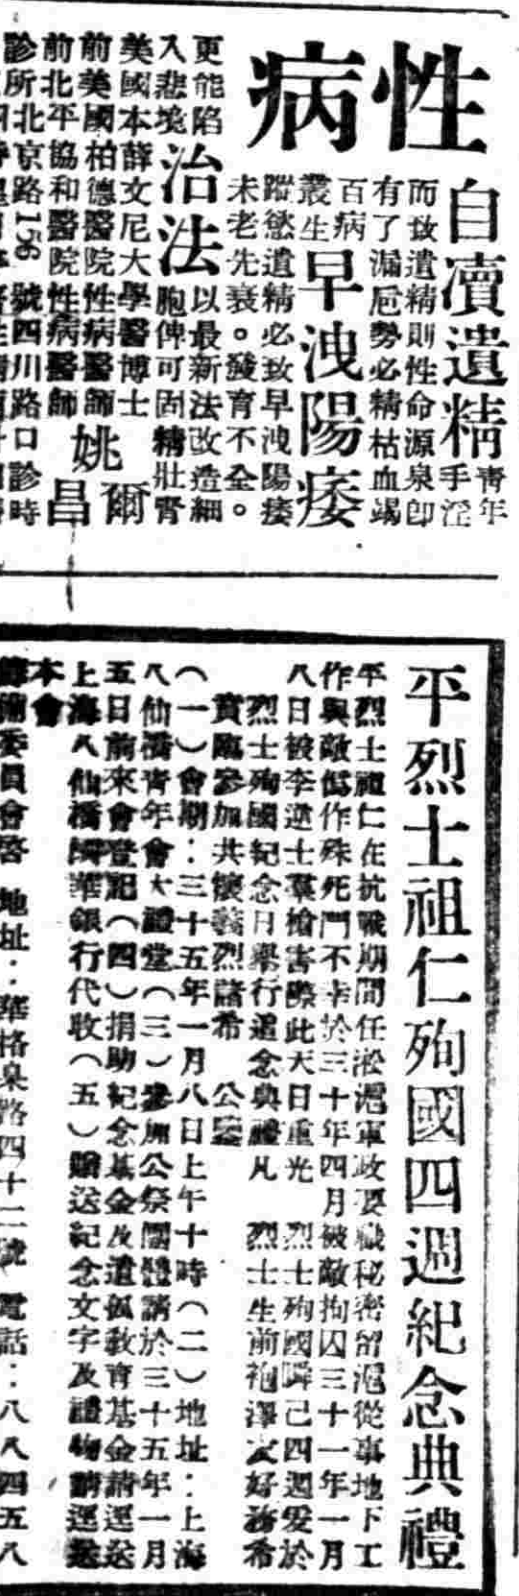 性病
自瀆遺精
青年手淫
而致遺精則性命源泉卽
有了漏巵勢必精枯血竭
百病叢生
早洩陽痿
蹤慾遺精必致早洩陽痿
未老先衰。發育不全。
更能陷入悲境
治法
以最新法改造細胞俾可固精壯腎
美國本薛文尼大學醫博士
前美國柏德醫院性病醫師
前北平協和醫院性病醫師
姚爾昌
診所北京路156號四川路口診時
平烈士祖仁殉國四週紀念典禮
平烈士祖仁在抗戰期間任淞滬軍政要職秘密留滬從事地下工
作與敵僞作殊死鬥不幸於三十年四月被敵拘囚三十一年一月
八日被李逆士羣槍害際此天日重光 烈士殉國瞬已四週爰於
烈士殉國紀念日舉行追念典禮凡 烈士生前袍澤友好務希
賁臨參加共懷義烈諸希 公鑒
(一)會期：三十五年一月八日上午十時(二)地址：上海
八仙橋青年會大禮堂(三)參加公祭團體請於三十五年一月
五日前來會登記(四)捐助紀念基金及遺孤教育基金請逕送
上海八仙橋國華銀行代收(五)贈送紀念文字及禮物請逕送
本會
籌備委員會啓 地址：華格臬路四十二號 電話：八八四五八